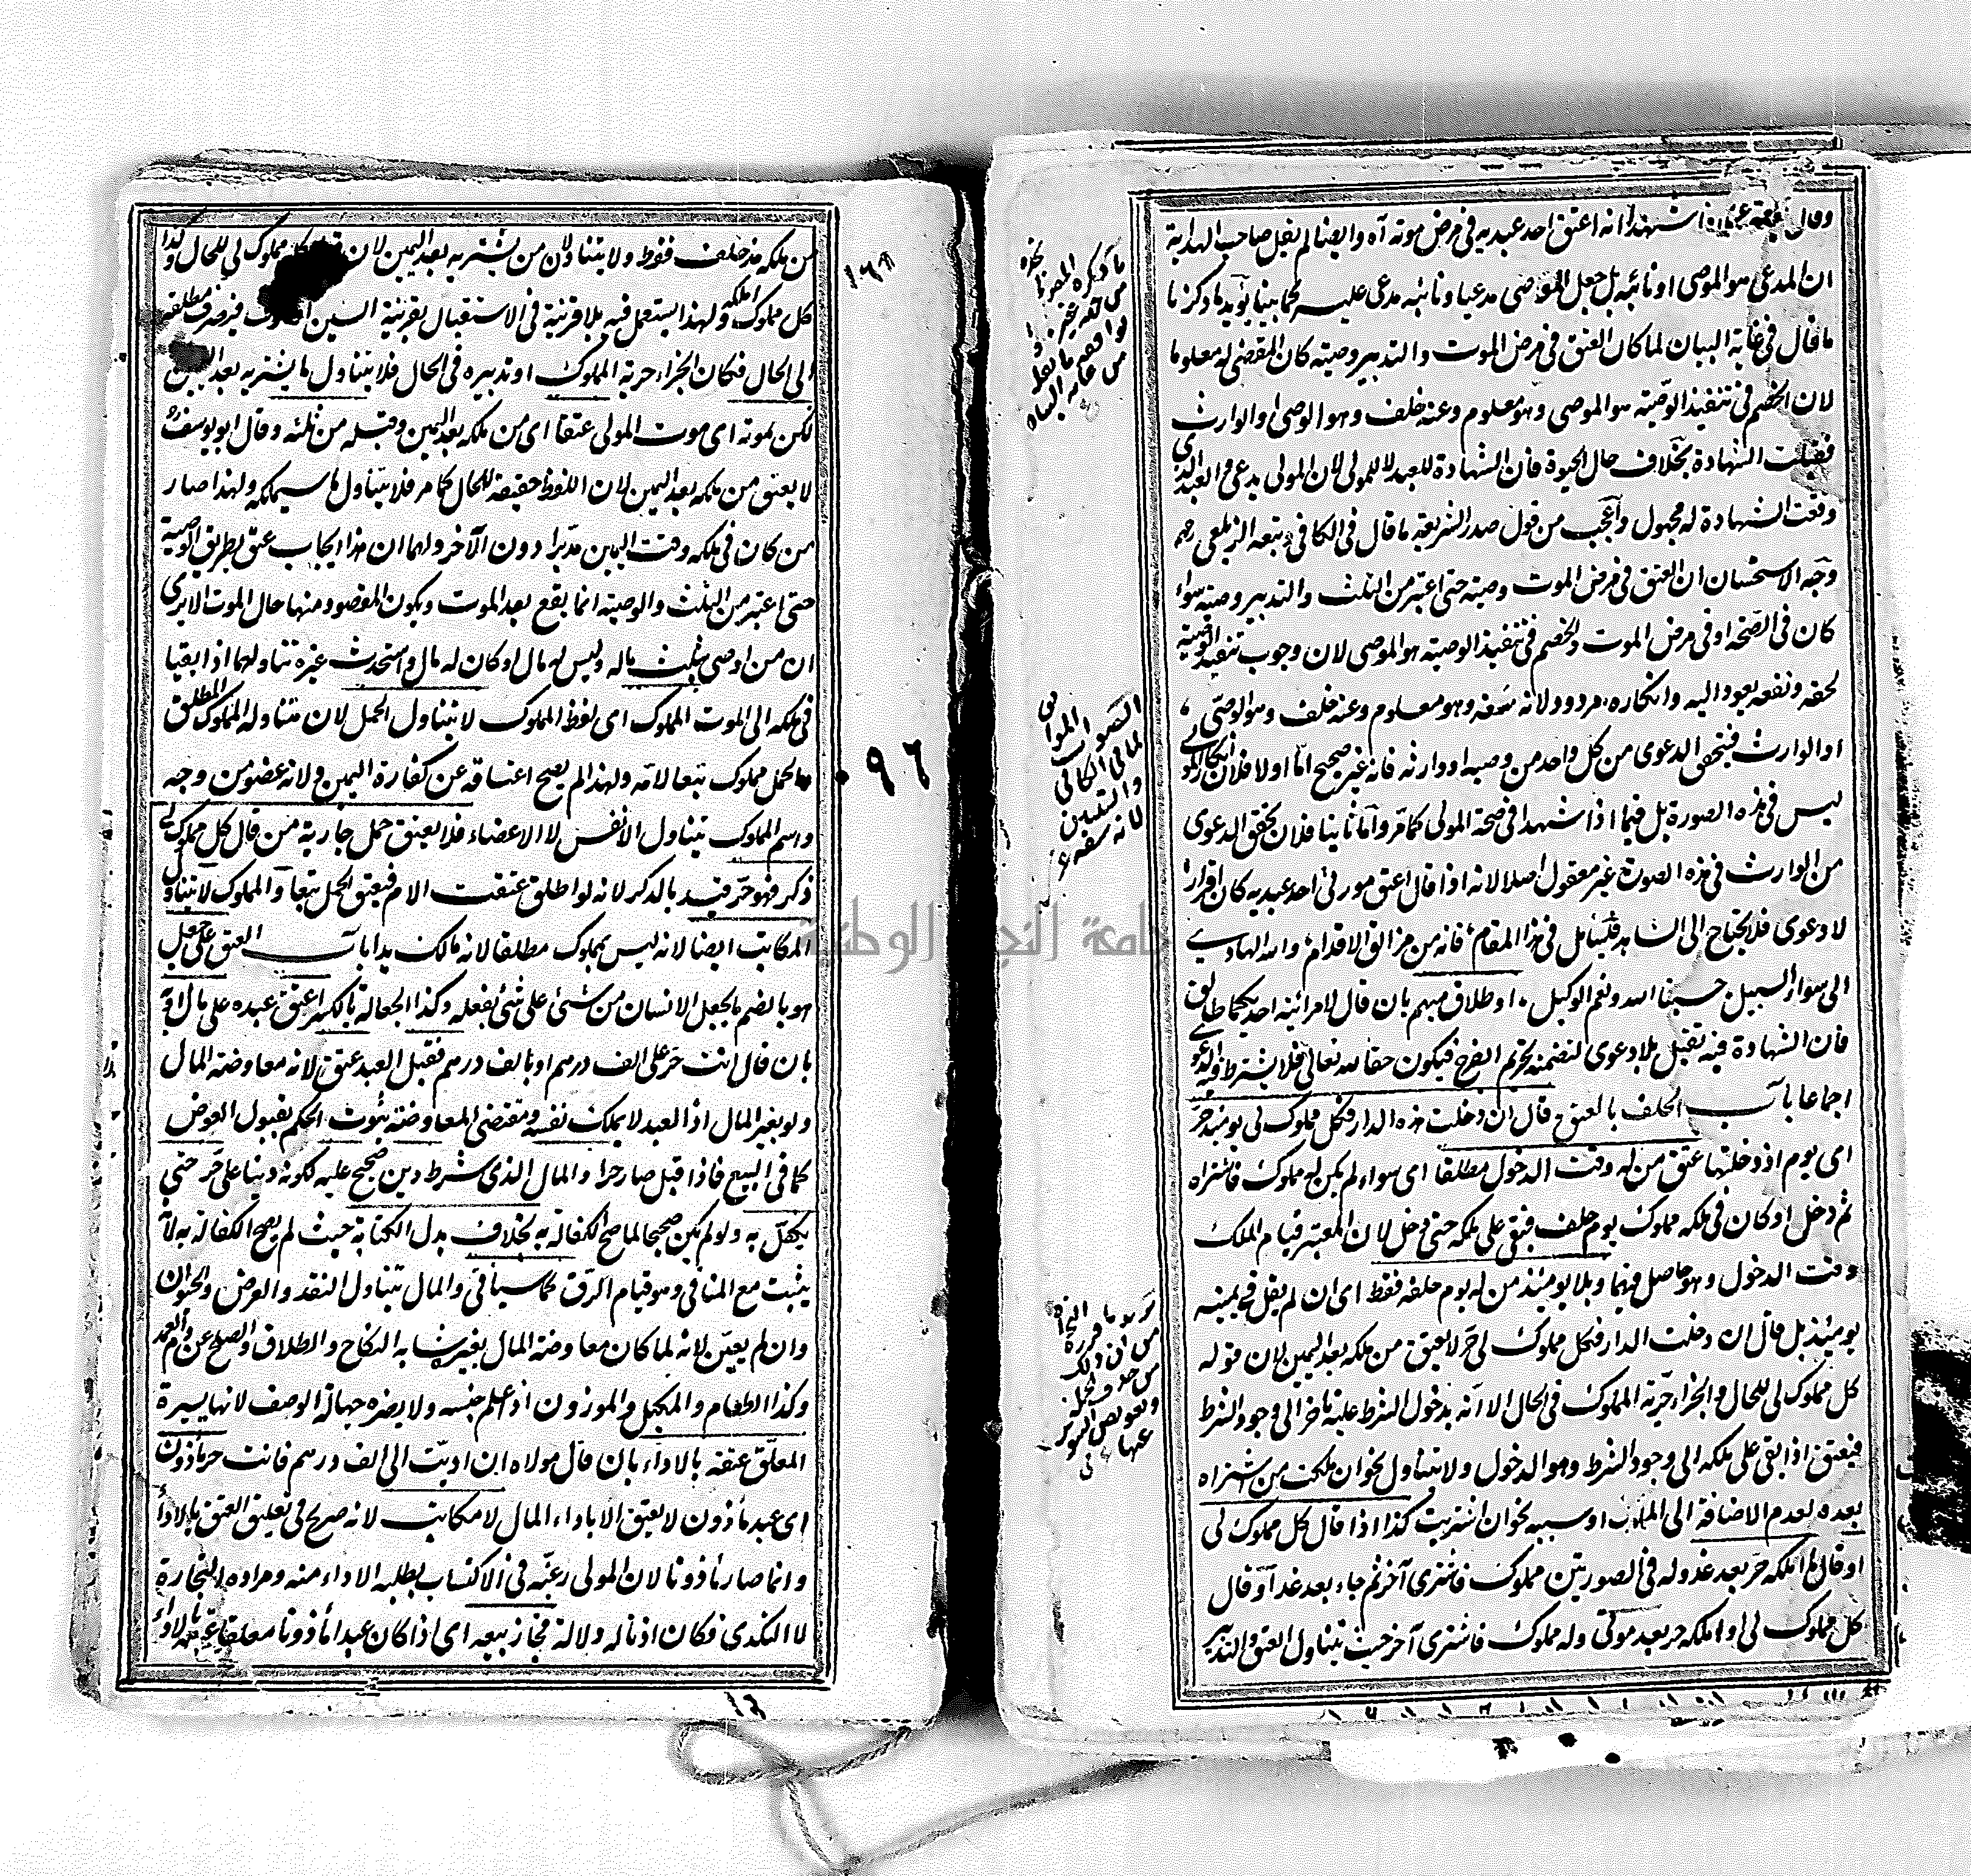 وقال بعده اذا شهدا انه اعتق احد عبديه في مرض موته آه وايضا لم يقل صاحب الهداية
ان المدعي هو الموصي او نائبه بل جعل الموصي مدعيا ونائبه مدعى عليه كما بينا يؤيد ما ذكرنا
ما قال في غاية البيان لما كان العتق في مرض الموت والتدبير وصية كان المقضي له معلوما
لان الخصم في تنفيذ الوصية هو الموصي وهو معلوم وعنه خلف وهو الوصي او الوارث
فقبلت الشهادة بخلاف حال الحيوة فان الشهادة للعبد لا للمولى لان المولى يدعي والعبد الذي
وقعت الشهادة له مجهول وأعجب من قول صدر الشريعة ما قال في الكافي وتبعه الزيلعي رحمه
وجه الاستحسان ان العتق في مرض الموت وصية حتى اعتبر من الثلث والتدبير وصية سواء
كان في الصحة او في مرض الموت والخصم في تنفيذ الوصية هو الموصي لان وجوب تنفيذ الوصية
لحقه ونفعه يعود اليه وانكاره مردود ولانه سفه وهو معلوم وعنه خلف وهو الوصي
او الوارث فيتحقق الدعوى من كل واحد من وصيه او وارثه فانه غير صحيح اما اولا فلان انكار المولى
ليس في هذه الصورة بل فيما اذا شهدا في صحة المولى كما مر وأما ثانيا فلان تحقق الدعوى
من الوارث في هذه الصورة غير معقول اصلا لانه اذا قال اعتق مورثي احد عبديه كان اقرارا
لا دعوى فلا يحتاج الى الشاهد فليتأمل في هذا المقام فانه من مزالق الاقدام والله الهادي
الى سواء السبيل حسبنا الله ونعم الوكيل او طلاق مبهم بان قال لامرأتيه احديكما طالق
فان الشهادة فيه تقبل بلا دعوى لتضمنه تحريم الفرج فيكون حقا لله تعالى فلا يشترط فيه الدعوى
اجماعا باب الحلف بالعتق قال ان دخلت هذه الدار فكل مملوك لي يومئذ حر
اي يوم اذ دخلتها عتق من له وقت الدخول مطلقا اي سواء لم يكن له مملوك فاشتراه
ثم دخل او كان في ملكه مملوك يوم حلف فبقي على ملكه حتى دخل لان المعتبر قيام الملك
وقت الدخول وهو حاصل فيهما وبلا يومئذ من له يوم حلفه فقط اي ان لم يقل في يمينه
يومئذ بل قال ان دخلت الدار فكل مملوك لي حر لا يعتق من ملكه بعد اليمين لان قوله
كل مملوك لي للحال والجزاء حرية المملوك في الحال الا انه بدخول الشرط عليه تأخر الى وجود الشرط
فيعتق اذا بقي على ملكه الى وجود الشرط وهو الدخول ولا يتناول نحو ان ملكت من شراه
بعده لعدم الاضافة الى الملك او سببه نحو ان اشتريت كذا اذا قال كل مملوك لي
او قال ما املكه حر بعد غد وله في الصورتين مملوك فاشترى آخر ثم جاء بعد غد أو قال
كل مملوك لي او املكه حر بعد موتي وله مملوك فاشترى آخر حيث يتناول العتق والتدبير
الصواب الموافق
لما في الكافي
والتبيين
لانه سفه
من ملكه مذ حلف فقط ولا يتناولان من يشتريه بعد اليمين لان مملوك لي للحال وكذا
كل مملوك املكه ولهذا يستعمل فيه بلا قرينة في الاستقبال بقرينة السين فيصرف مطلقه
الى الحال فكان الجزاء حرية المملوك او تدبيره في الحال فلا يتناول ما يشتريه بعد اليمين
لكن بموته اي موت المولى عتقا اي من ملكه بعد اليمين وقبله من ثلثه وقال ابو يوسف
لا يعتق من ملكه بعد اليمين لان اللفظ حقيقة للحال كما مر فلا يتناول ما سيملكه ولهذا صار
من كان في ملكه وقت اليمين مدبرا دون الآخر ولهما ان هذا ايجاب عتق بطريق الوصية
حتى اعتبر من الثلث والوصية انما يقع بعد الموت ويكون المقصود منها حال الموت الا يرى
ان من اوصى بثلث ماله وليس له مال او كان له مال واستحدث غيره تناولهما اذا بقيا
في ملكه الى الموت المملوك اي لفظ المملوك لا يتناول الحمل لان تناوله المملوك المطلق
والحمل مملوك تبعا لامه ولهذا لم يصح اعتاقه عن كفارة اليمين ولانه عضو من وجه
واسم المملوك يتناول الانفس لا الاعضاء فلا يعتق حمل جارية من قال كل مملوك لي
ذكر فهو حر قيد بالذكر لانه لو اطلق عتقت الام فيعتق الحمل تبعا والمملوك لا يتناول
المكاتب ايضا لانه ليس بمملوك مطلقا لانه مالك يدا باب العتق على جعل
هو بالضم ما يجعل الانسان من شئ على شئ يفعله وكذا الجعالة بالكسر اعتق عبده على مال او به
بان قال انت حر على الف درهم او بالف درهم فقبل العبد عتق لانه معاوضة المال
ولو بغير المال اذ العبد لا يملك نفسه ومقتضى المعاوضة ثبوت الحكم بقبول العوض
كما في البيع فاذا قبل صار حرا والمال الذي شرط دين صحيح عليه لكونه دينا على حر حتى
يكفل به ولو لم يكن صحيحا لما صح الكفالة به بخلاف بدل الكتابة حيث لم يصح الكفالة به لانه
يثبت مع المنافي وهو قيام الرق كما سيأتي والمال يتناول النقد والعرض والحيوان
وان لم يعين لانه لما كان معاوضة المال بغيره شابه النكاح والطلاق والصلح عن دم العمد
وكذا الطعام والمكيل والموزون اذا علم جنسه ولا يضره جهالة الوصف لانها يسيرة
المعلق عتقه بالاداء بان قال مولاه ان اديت الى الف درهم فانت حر مأذون
اي عبد مأذون لا يعتق الا باداء المال لا مكاتب لانه صريح في تعليق العتق بالاداء
وانما صار مأذونا لان المولى رغبه في الاكتساب بطلبه الاداء منه ومراده التجارة
لا التكدي فكان اذنا له دلالة فجاز بيعه اي اذا كان عبدا مأذونا معلقا عتقه بالاداء
٩٦
جامعة النجاح الوطنية